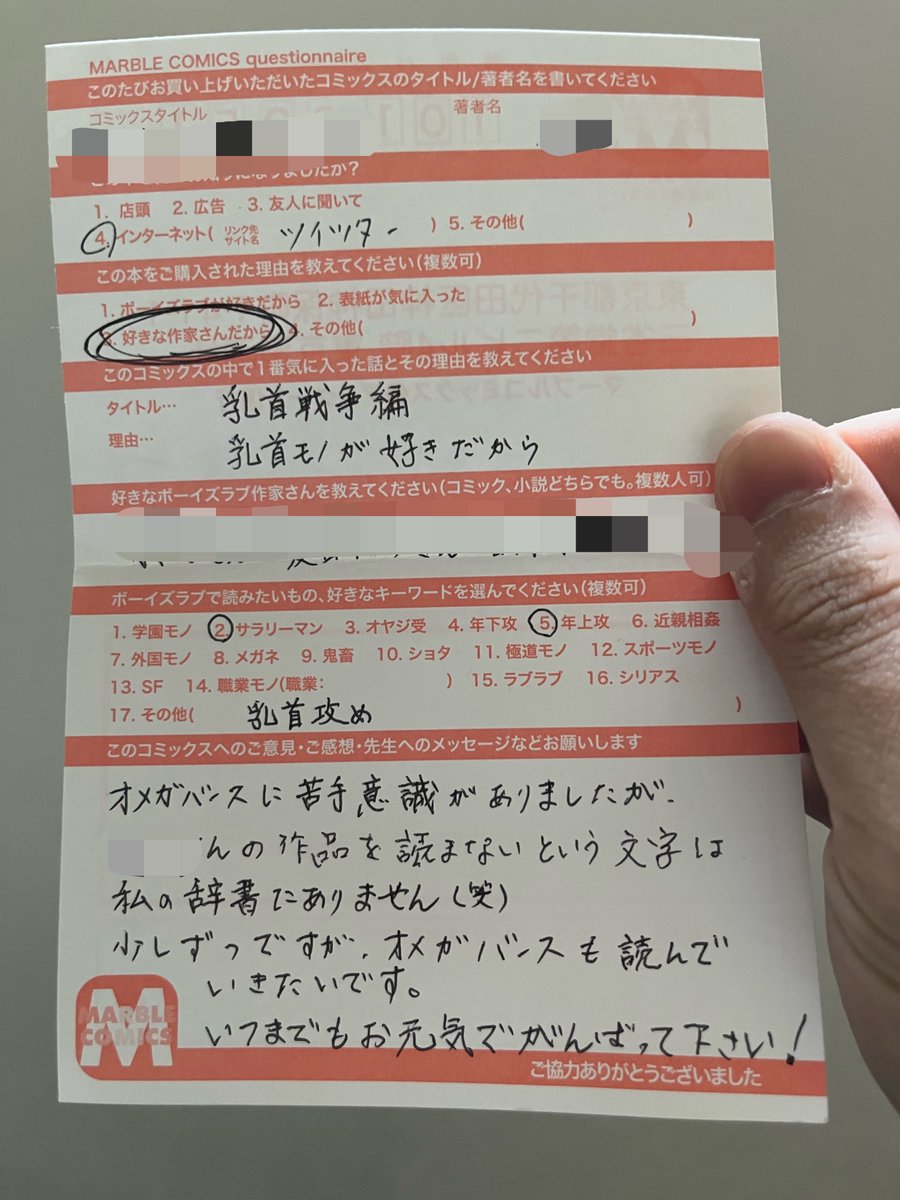 MARBLE COMICS questionnaire
このたびお買い上げいただいたコミックスのタイトル/著者名を書いてください
コミックスタイトル 著者名
になりましたか?
1. 店頭 2. 広告 3. 友人に聞いて
4. インターネット( リンク先 サイト名 ツイッター ) 5. その他( )
この本をご購入された理由を教えてください(複数可)
1. ボーイズラブが好きだから 2. 表紙が気に入った
3. 好きな作家さんだから 4. その他( )
このコミックスの中で1番気に入った話とその理由を教えてください
タイトル… 乳首戦争編
理由… 乳首モノが好きだから
好きなボーイズラブ作家さんを教えてください(コミック、小説どちらでも。複数人可)
ボーイズラブで読みたいもの、好きなキーワードを選んでください(複数可)
1. 学園モノ 2. サラリーマン 3. オヤジ受 4. 年下攻 5. 年上攻 6. 近親相姦
7. 外国モノ 8. メガネ 9. 鬼畜 10. ショタ 11. 極道モノ 12. スポーツモノ
13. SF 14. 職業モノ(職業: ) 15. ラブラブ 16. シリアス
17. その他( 乳首攻め )
このコミックスへのご意見・ご感想・先生へのメッセージなどお願いします
オメガバースに苦手意識がありましたが、
んの作品を読まないという文字は
私の辞書にありません(笑)
少しずつですが、オメガバースも読んで
いきたいです。
いつまでもお元気でがんばって下さい!
MARBLE
COMICS
ご協力ありがとうございました